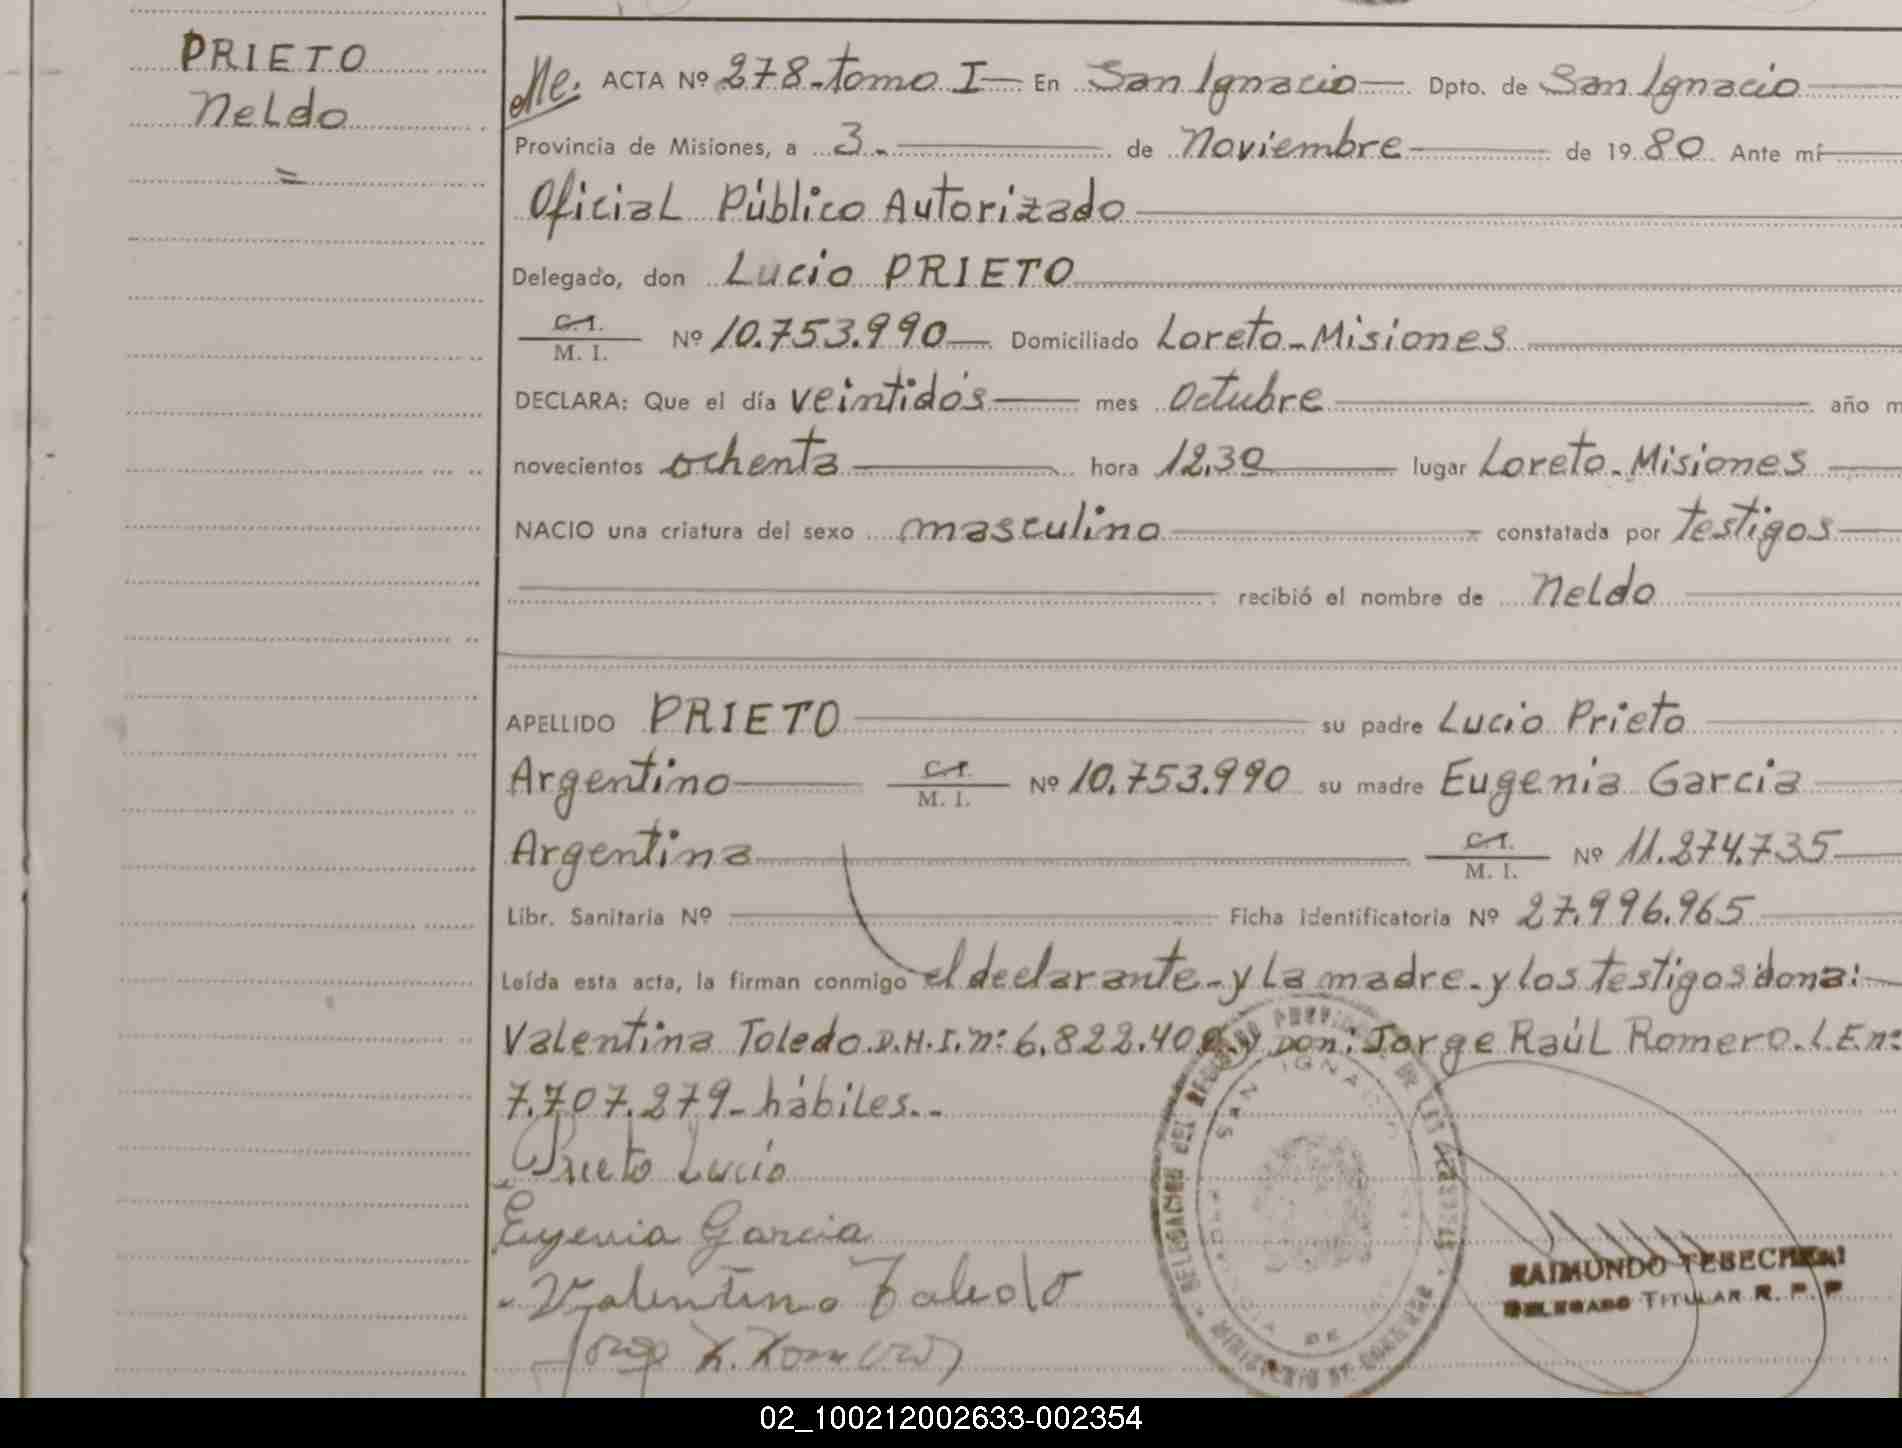 PRIETO
Neldo
=
Me. ACTA Nº 278-tomo I — En San Ignacio — Dpto. de San Ignacio
Provincia de Misiones, a 3. — de Noviembre — de 1980 Ante mí
Oficial Público Autorizado
Delegado, don Lucio PRIETO
C.I.
M. I. Nº 10.753.990 — Domiciliado Loreto-Misiones
DECLARA: Que el día veintidós — mes Octubre — año m
novecientos ochenta — hora 12,30 — lugar Loreto-Misiones
NACIO una criatura del sexo masculino — constatada por testigos
recibió el nombre de Neldo
APELLIDO PRIETO — su padre Lucio Prieto
Argentino — C.I. M. I. Nº 10.753.990 su madre Eugenia Garcia
Argentina C.I. M. I. Nº 11.274.735
Libr. Sanitaria Nº — Ficha identificatoria Nº 27.996.965
Leída esta acta, la firman conmigo el declarante-y La madre-y los testigos:dona:
Valentina Toledo.D.N.I.n: 6.822.400 y Don: Jorge Raúl Romero.L.E.n:
7.707.279-hábiles.-
Prieto Lucio
Eugenia Garcia
Valentina Toledo
Jorge R. Romero
DELEGACION DEL REGISTRO PROVINCIAL DE LAS PERSONAS
SAN IGNACIO
PROVINCIA DE
MINISTERIO DE GOBIERNO
RAIMUNDO TEBECHERI
DELEGADO TITULAR R. P. P
02_100212002633-002354